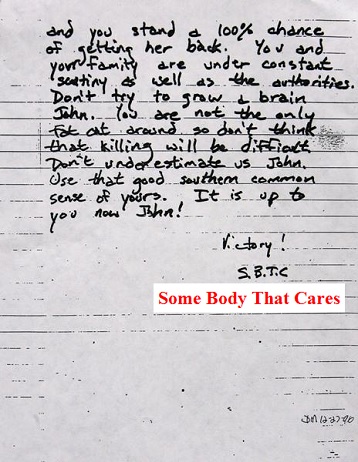 and you stand a 100% chance
of getting her back. You and
your family are under constant
scutiny as well as the authorities.
Don't try to grow a brain
John. You are not the only
fat cat around so don't think
that killing will be difficult.
Don't underestimate us John.
Use that good southern common
sense of yours. It is up to
you now John!
Victory!
S.B.T.C
Some Body That Cares